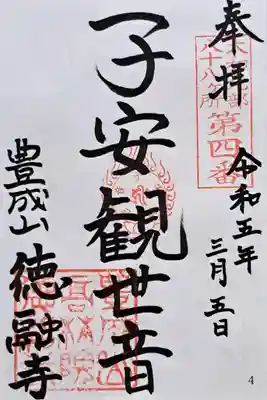 奉拝
第四番
八十八ヶ所
令和五年
三月五日
子安観世音
豊成山
徳融寺
4